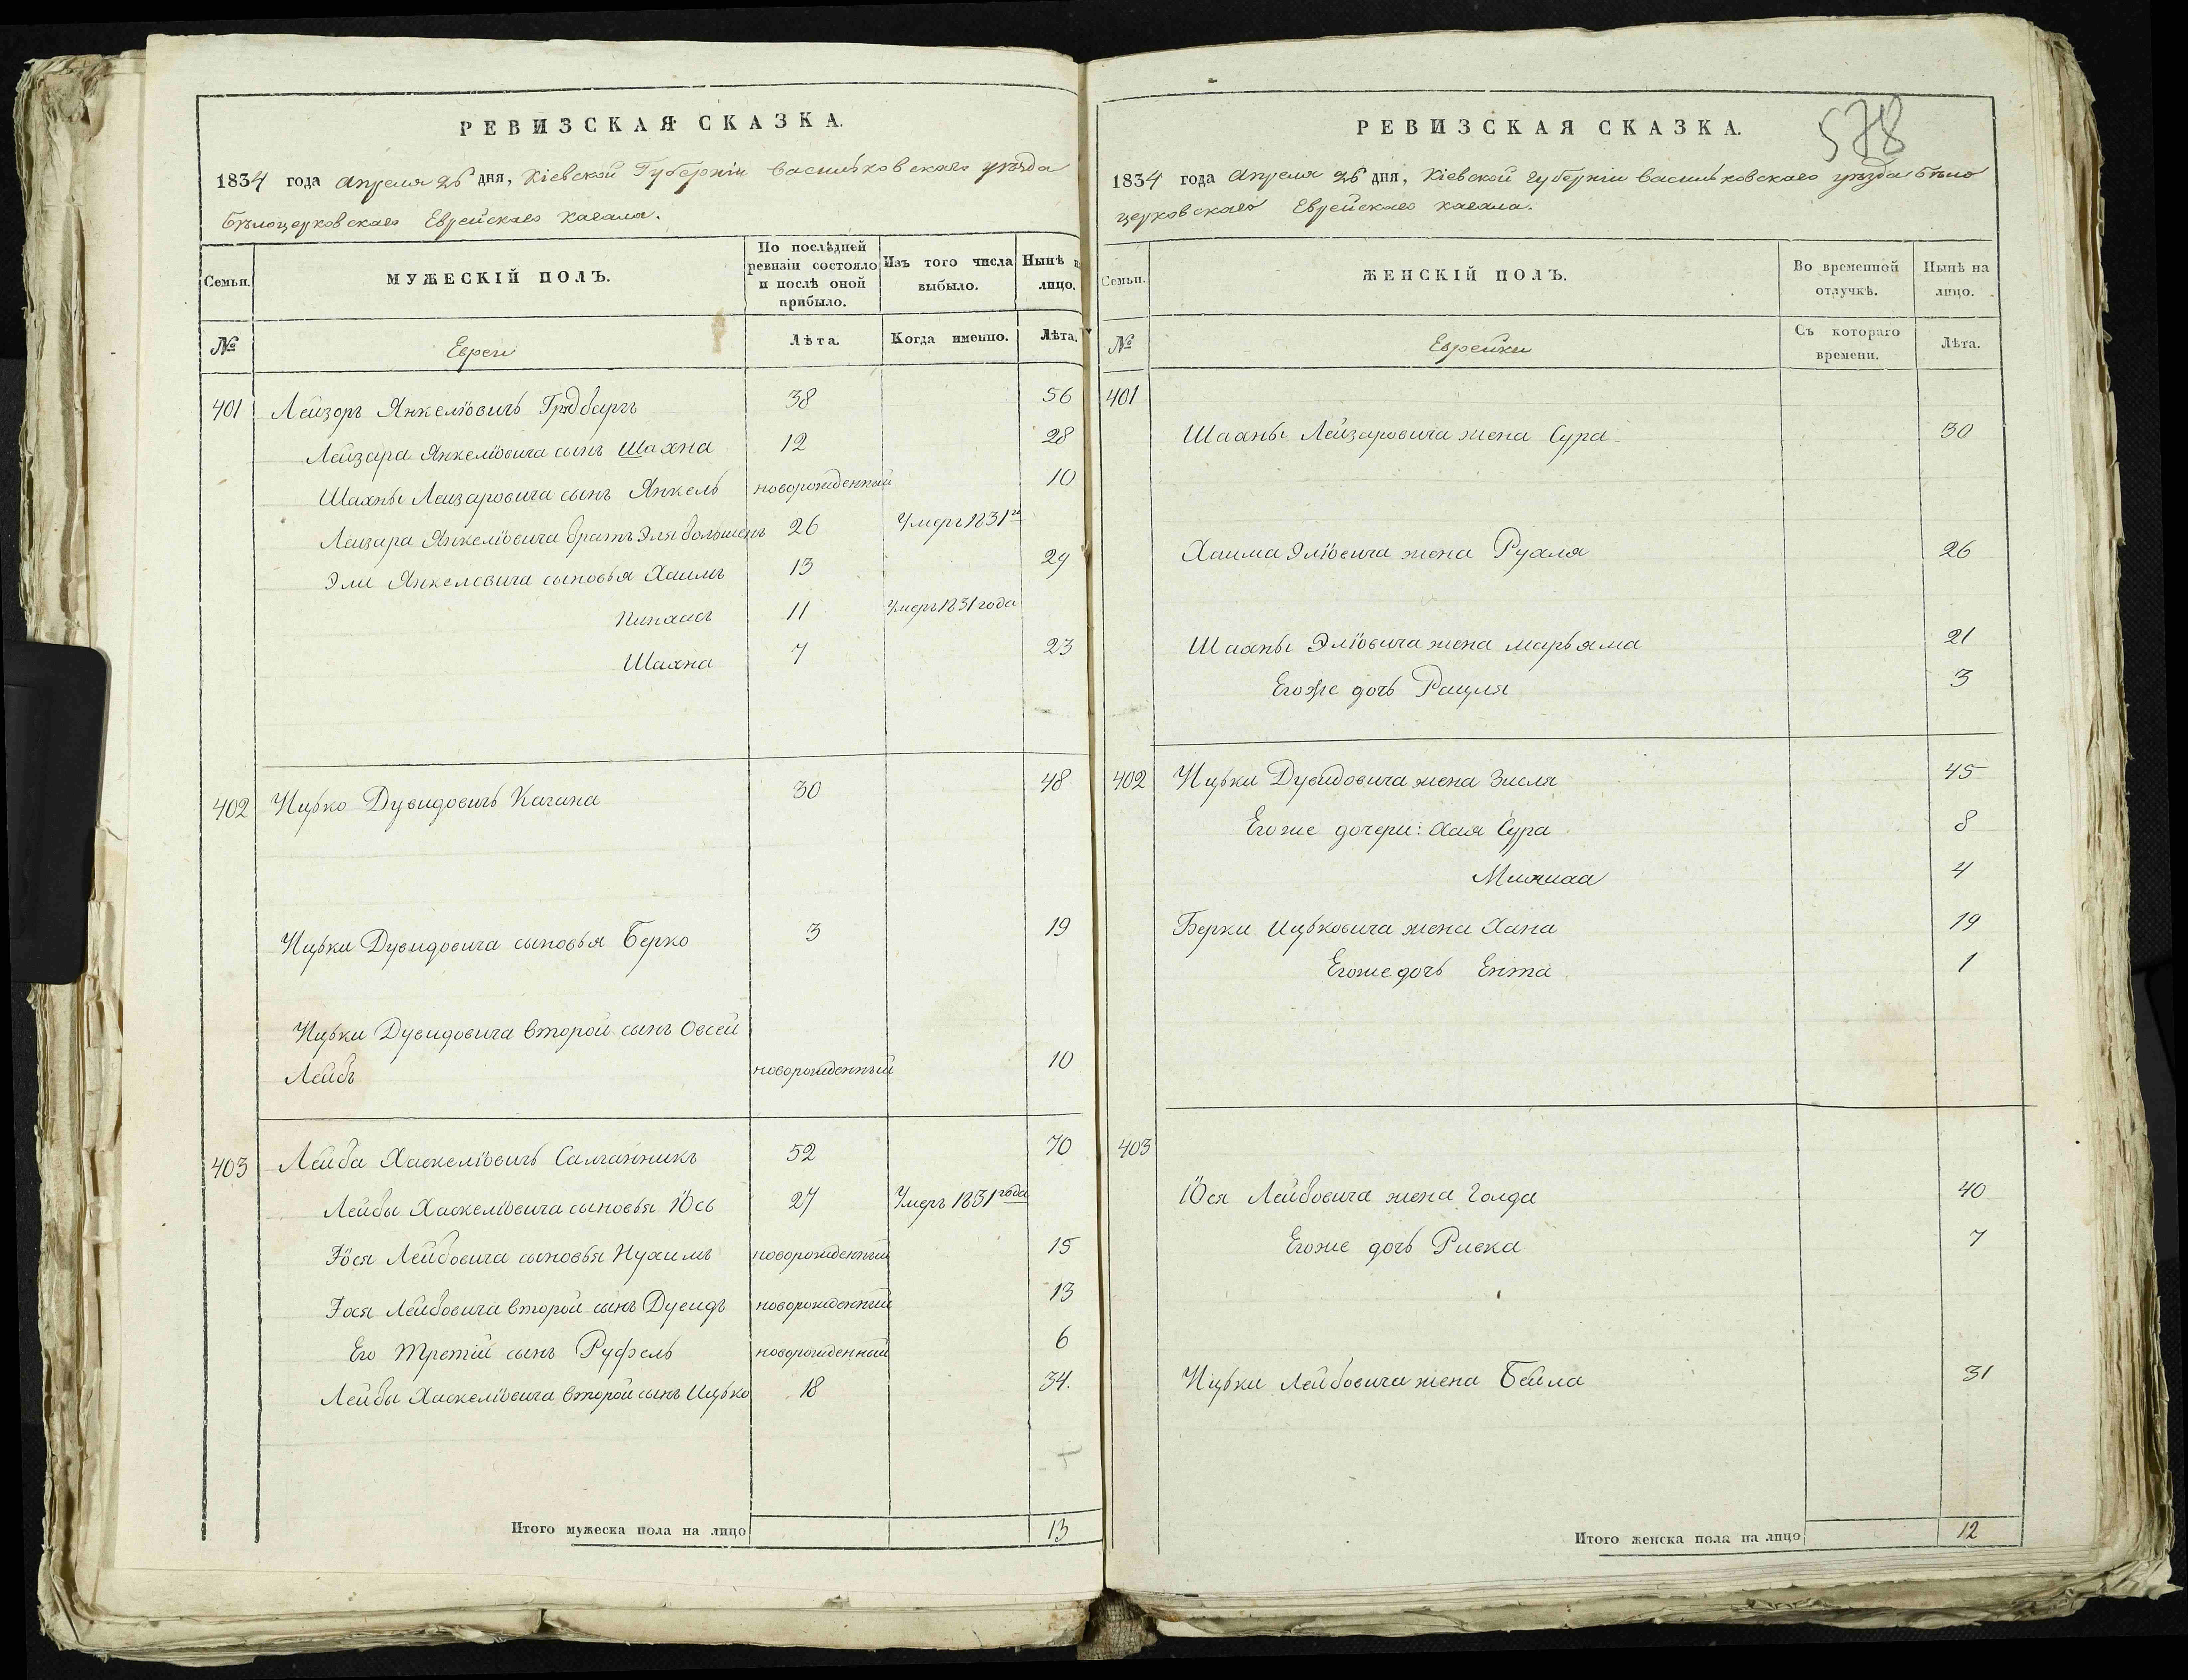 РЕВИЗСКАЯ СКАЗКА.
1834 года Апреля 26 дня, Кіевской Губерніи Васильковскаго уѣзда
Бѣлоцерковскаго Еврейскаго кагала.
Семьи.
МУЖЕСКІЙ ПОЛЪ.
По послѣдней
ревизіи состояло
и послѣ оной
прибыло.
Изъ того числа
выбыло.
Нынѣ
лицо.
№
Евреи
Лѣта.
Когда именно.
Лѣта.
401 Лейзоръ Янкеліовичъ 38 56
Лейзара Янкеліовича сынъ Шахна 12 28
Шахны Лейзаровича сынъ Янкель новорожденный 10
Лейзара Янкеліовича братъ Эля 26 Умеръ 1831го
Эли Янкеловича сыновья Хаимъ 13 29
Пинхасъ 11 Умеръ 1831 года
Шахна 7 23
402 Ицько Дувидовичъ Кагана 30 48
Ицьки Дувидовича сыновья Берко 3 19
Ицьки Дувидовича второй сынъ Овсей
Лейбъ новорожденный 10
403 Лейба Хаскеліовичъ Салганникъ 52 70
Лейбы Хаскеліовича сыновья Іось 27 Умеръ 1831 года
Іося Лейбовича сыновья Нухимъ новорожденный 15
Іося Лейбовича второй сынъ Дувидъ новорожденный 13
Его третій сынъ Руфель новорожденный 6
Лейбы Хаскеліовича второй сынъ Ицько 18 34.
Итого мужеска пола на лицо 13
578
РЕВИЗСКАЯ СКАЗКА.
1834 года Апреля 26 дня, Кіевской Губерніи Васильковскаго уѣзда Бѣло
церковскаго Еврейскаго кагала.
Семьи.
ЖЕНСКІЙ ПОЛЪ.
Во временной
отлучкѣ.
Нынѣ на
лицо.
№
Еврейки
Съ котораго
времени.
Лѣта.
401
Шахны Лейзаровича жена Сура 30
Хаима Эліовича жена Рухля 26
Шахны Эліовича жена Марьяма 21
Егоже дочь Рацля 3
402 Ицьки Дувидовича жена Зисля 45
Егоже дочери: Хая Сура 8
4
Берки Ицьковича жена Хана 19
Егоже дочь Ента 1
403
Іося Лейбовича жена Голда 40
Егоже дочь Ривка 7
Ицьки Лейбовича жена Бейла 31
Итого женска пола на лицо 12